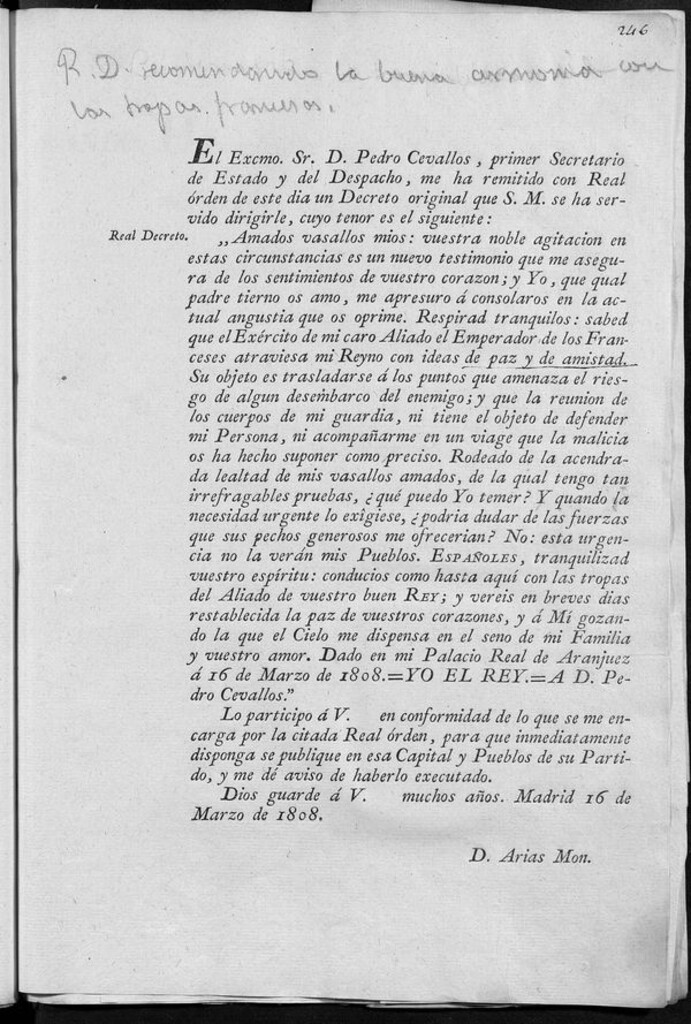 246
R. D. recomendando la buena armonia con
las tropas francesas.
El Excmo. Sr. D. Pedro Cevallos, primer Secretario
de Estado y del Despacho, me ha remitido con Real
órden de este dia un Decreto original que S. M. se ha ser-
vido dirigirle, cuyo tenor es el siguiente:
Real Decreto. „Amados vasallos mios: vuestra noble agitacion en
estas circunstancias es un nuevo testimonio que me asegu-
ra de los sentimientos de vuestro corazon; y Yo, que qual
padre tierno os amo, me apresuro á consolaros en la ac-
tual angustia que os oprime. Respirad tranquilos: sabed
que el Exército de mi caro Aliado el Emperador de los Fran-
ceses atraviesa mi Reyno con ideas de paz y de amistad.
Su objeto es trasladarse á los puntos que amenaza el ries-
go de algun desembarco del enemigo; y que la reunion de
los cuerpos de mi guardia, ni tiene el objeto de defender
mi Persona, ni acompañarme en un viage que la malicia
os ha hecho suponer como preciso. Rodeado de la acendra-
da lealtad de mis vasallos amados, de la qual tengo tan
irrefragables pruebas, ¿qué puedo Yo temer? Y quando la
necesidad urgente lo exîgiese, ¿podria dudar de las fuerzas
que sus pechos generosos me ofrecerian? No: esta urgen-
cia no la verán mis Pueblos. ESPAÑOLES, tranquilizad
vuestro espíritu: conducios como hasta aquí con las tropas
del Aliado de vuestro buen REY; y vereis en breves dias
restablecida la paz de vuestros corazones, y á Mí gozan-
do la que el Cielo me dispensa en el seno de mi Familia
y vuestro amor. Dado en mi Palacio Real de Aranjuez
á 16 de Marzo de 1808.=YO EL REY.=A D. Pe-
dro Cevallos."
Lo participo á V. en conformidad de lo que se me en-
carga por la citada Real órden, para que inmediatamente
disponga se publique en esa Capital y Pueblos de su Parti-
do, y me dé aviso de haberlo executado.
Dios guarde á V. muchos años. Madrid 16 de
Marzo de 1808.
D. Arias Mon.